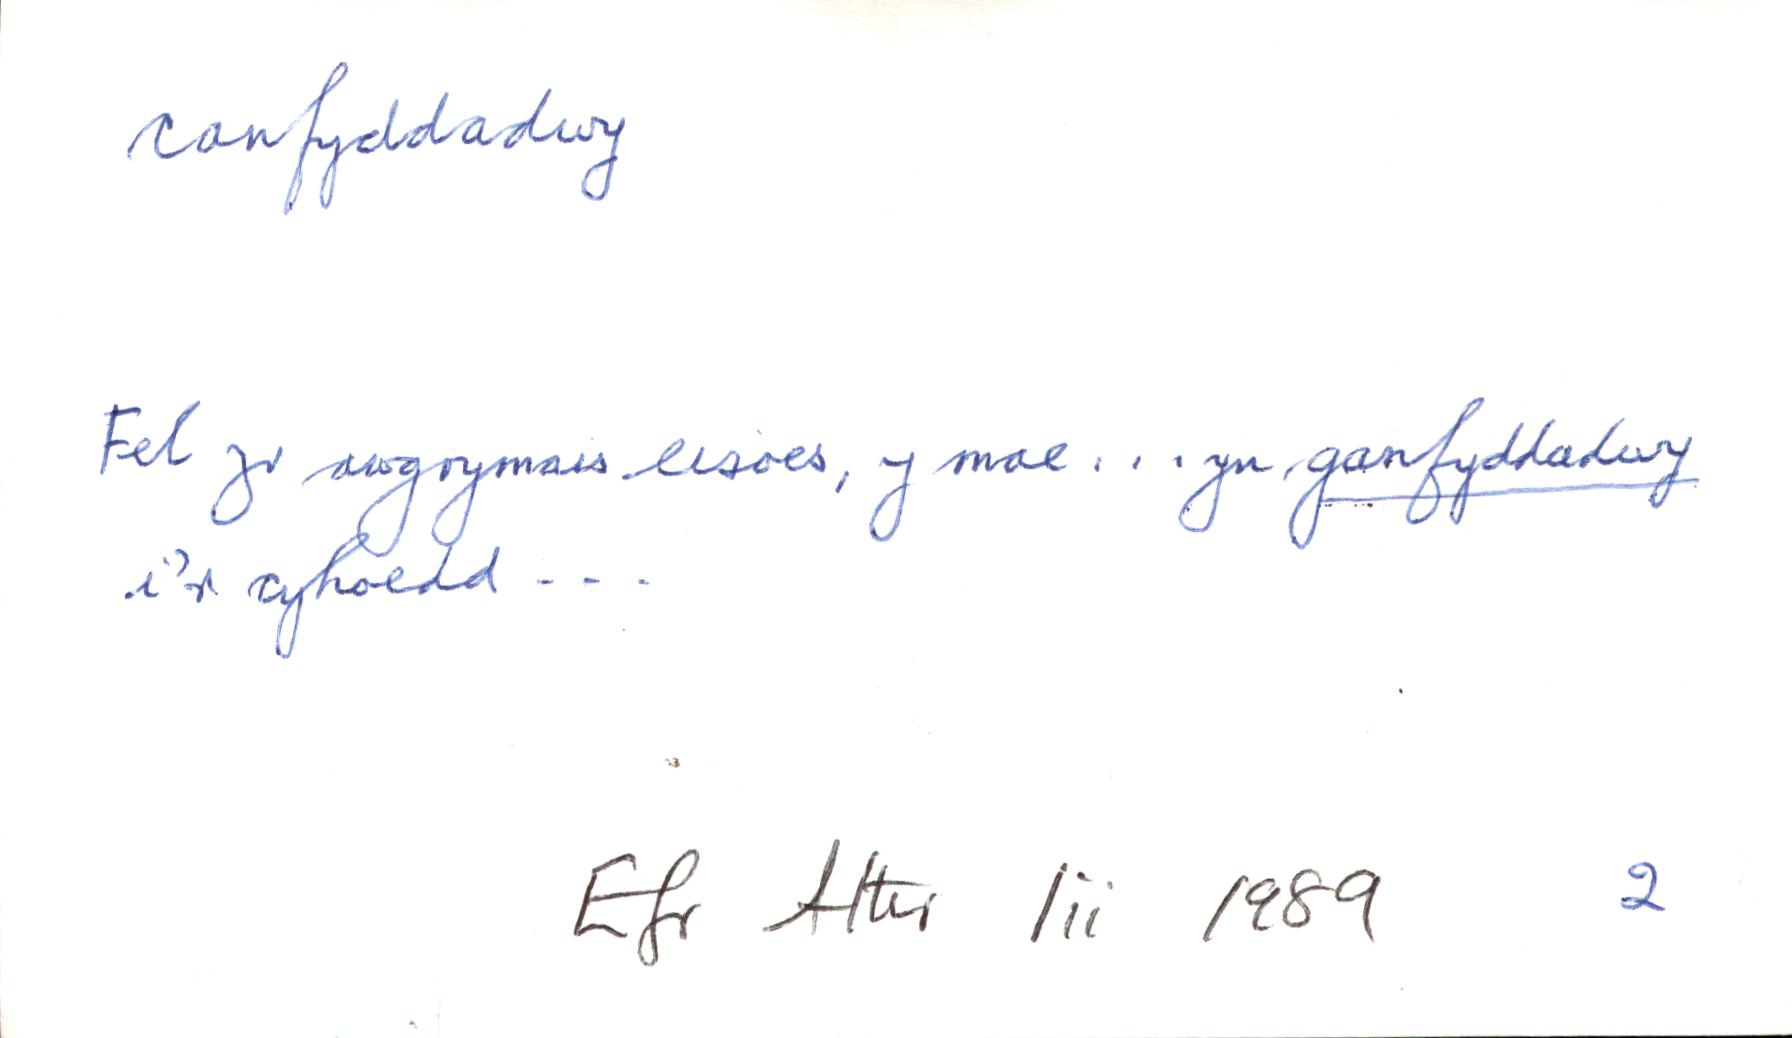 canfyddadwy
Fel yr awgrymais eisoes, y mae . . . yn ganfyddadwy
i'r cyhoedd - - -
Efr Alter lii 1989 2